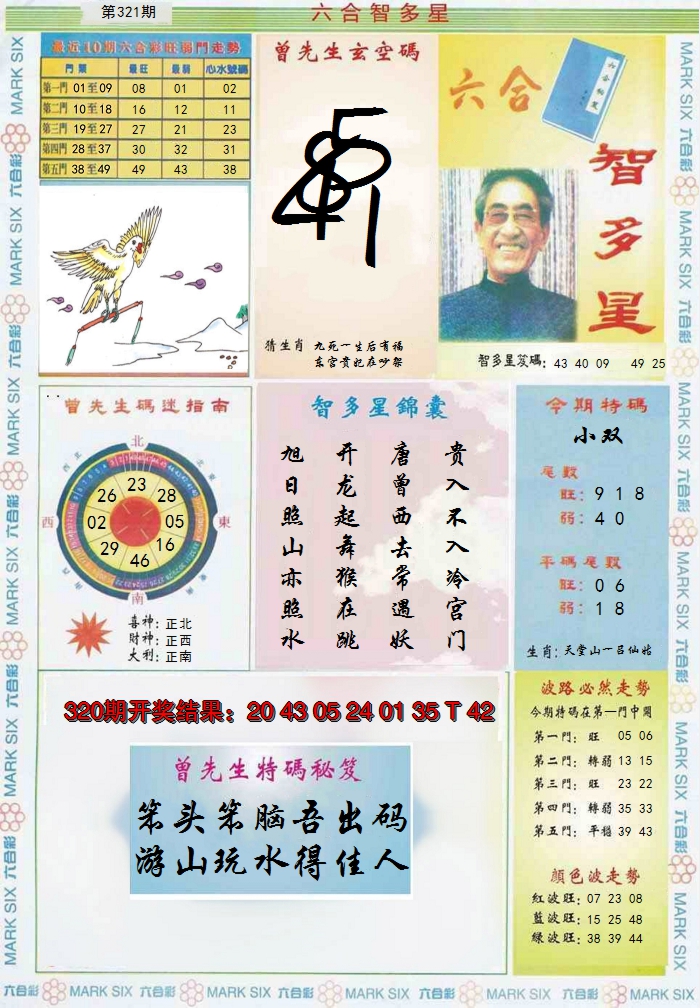 第321期
六合智多星
最近10期六合彩旺弱門走勢
門類 最旺 最弱 心水號碼
第一門 01至09 08 01 02
第二門 10至18 16 12 11
第三門 19至27 27 21 23
第四門 28至37 30 32 31
第五門 38至49 49 43 38
曾先生玄空碼
猜生肖 九死一生后有福
东宫贵妃在吵架
六合
智多星
智多星笈碼: 43 40 09 49 25
曾先生码迷指南
北
西
東
南
23
28
05
16
46
29
02
26
喜神: 正北
財神: 正西
大利: 正南
智多星錦囊
旭日照山亦照水
开龙起舞猴在跳
唐曾西去常遇妖
贵入不入冷宫门
今期特碼
小双
尾數
旺: 9 1 8
弱: 4 0
平碼尾數
旺: 0 6
弱: 1 8
生肖: 天堂山一吕仙姑
320期开奖结果: 20 43 05 24 01 35 T 42
曾先生特碼秘笈
笨头笨脑吾出码
游山玩水得佳人
波路必然走勢
今期特碼在第一門中開
第一門: 旺 05 06
第二門: 轉弱 13 15
第三門: 旺 23 22
第四門: 轉弱 35 33
第五門: 平穩 39 43
顏色波走勢
紅波旺: 07 23 08
藍波旺: 15 25 48
綠波旺: 38 39 44
MARK SIX 六合彩